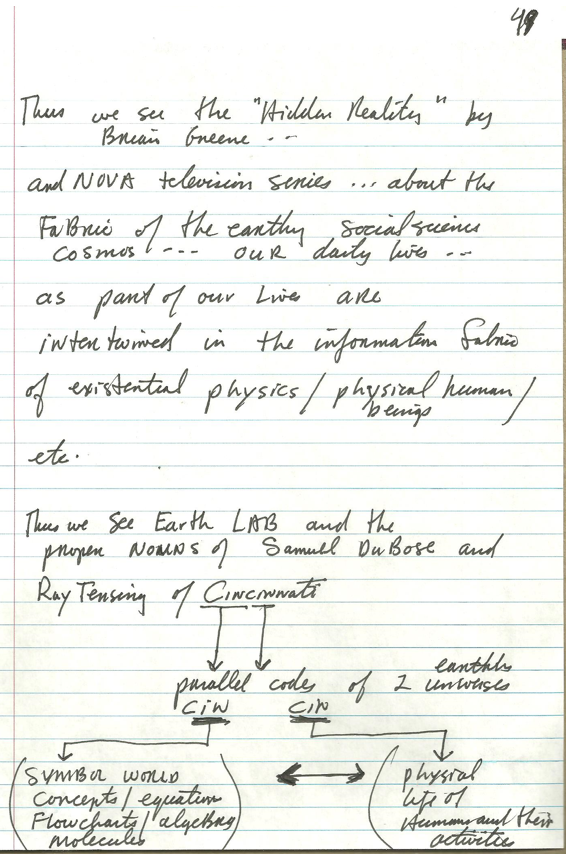 49
Thus we see the "Hidden Reality" by
Brian Greene --
and NOVA television series ... about the
FaBric of the earthy social science
cosmos --- OUR daily lives --
as part of our Lives are
intertwined in the information fabric
of existential physics / physical human /
beings
etc.
Thus we See Earth LAB and the
proper NOUNS of Samuel DuBose and
Ray Tensing of Cincinnati
parallel codes of 2 earthly
universes
CiN CiN
SYMBOL WORLD
Concepts / equation
Flowcharts / algebra
molecules
physical
life of
Humans and their
activities